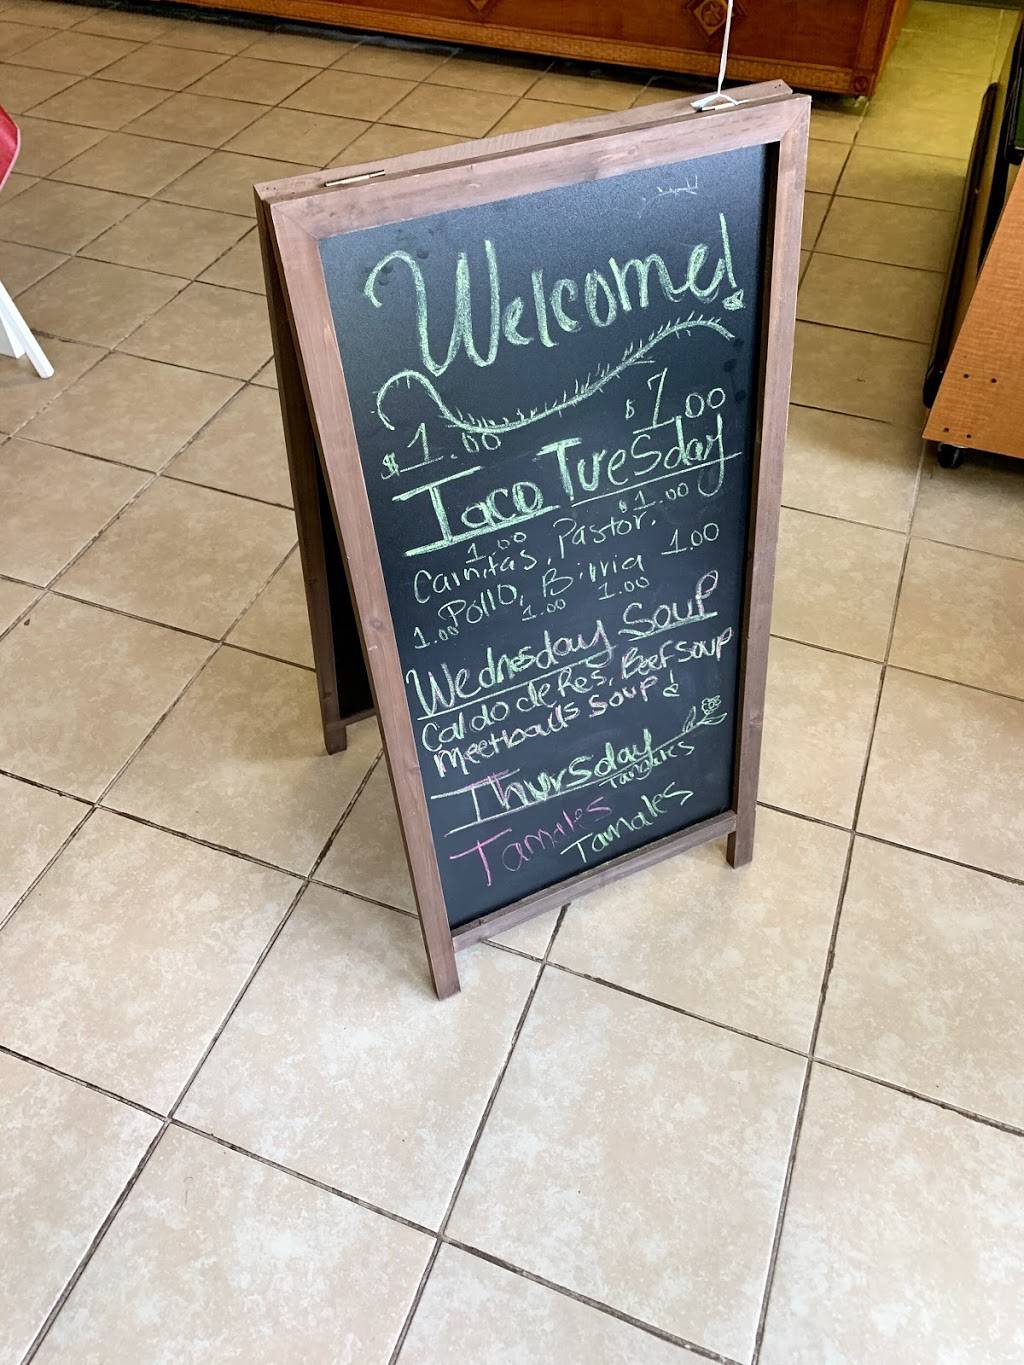 Welcome!
$1.00 $1.00
Taco Tuesday
1.00 $1.00
Carnitas, Pastor,
Pollo, Birria 1.00
1.00 1.00 1.00
Wednesday Soup
Caldo de Res, Beef Soup
Meetballs Soup
Thursday
Tamales
Tamales
Tamales